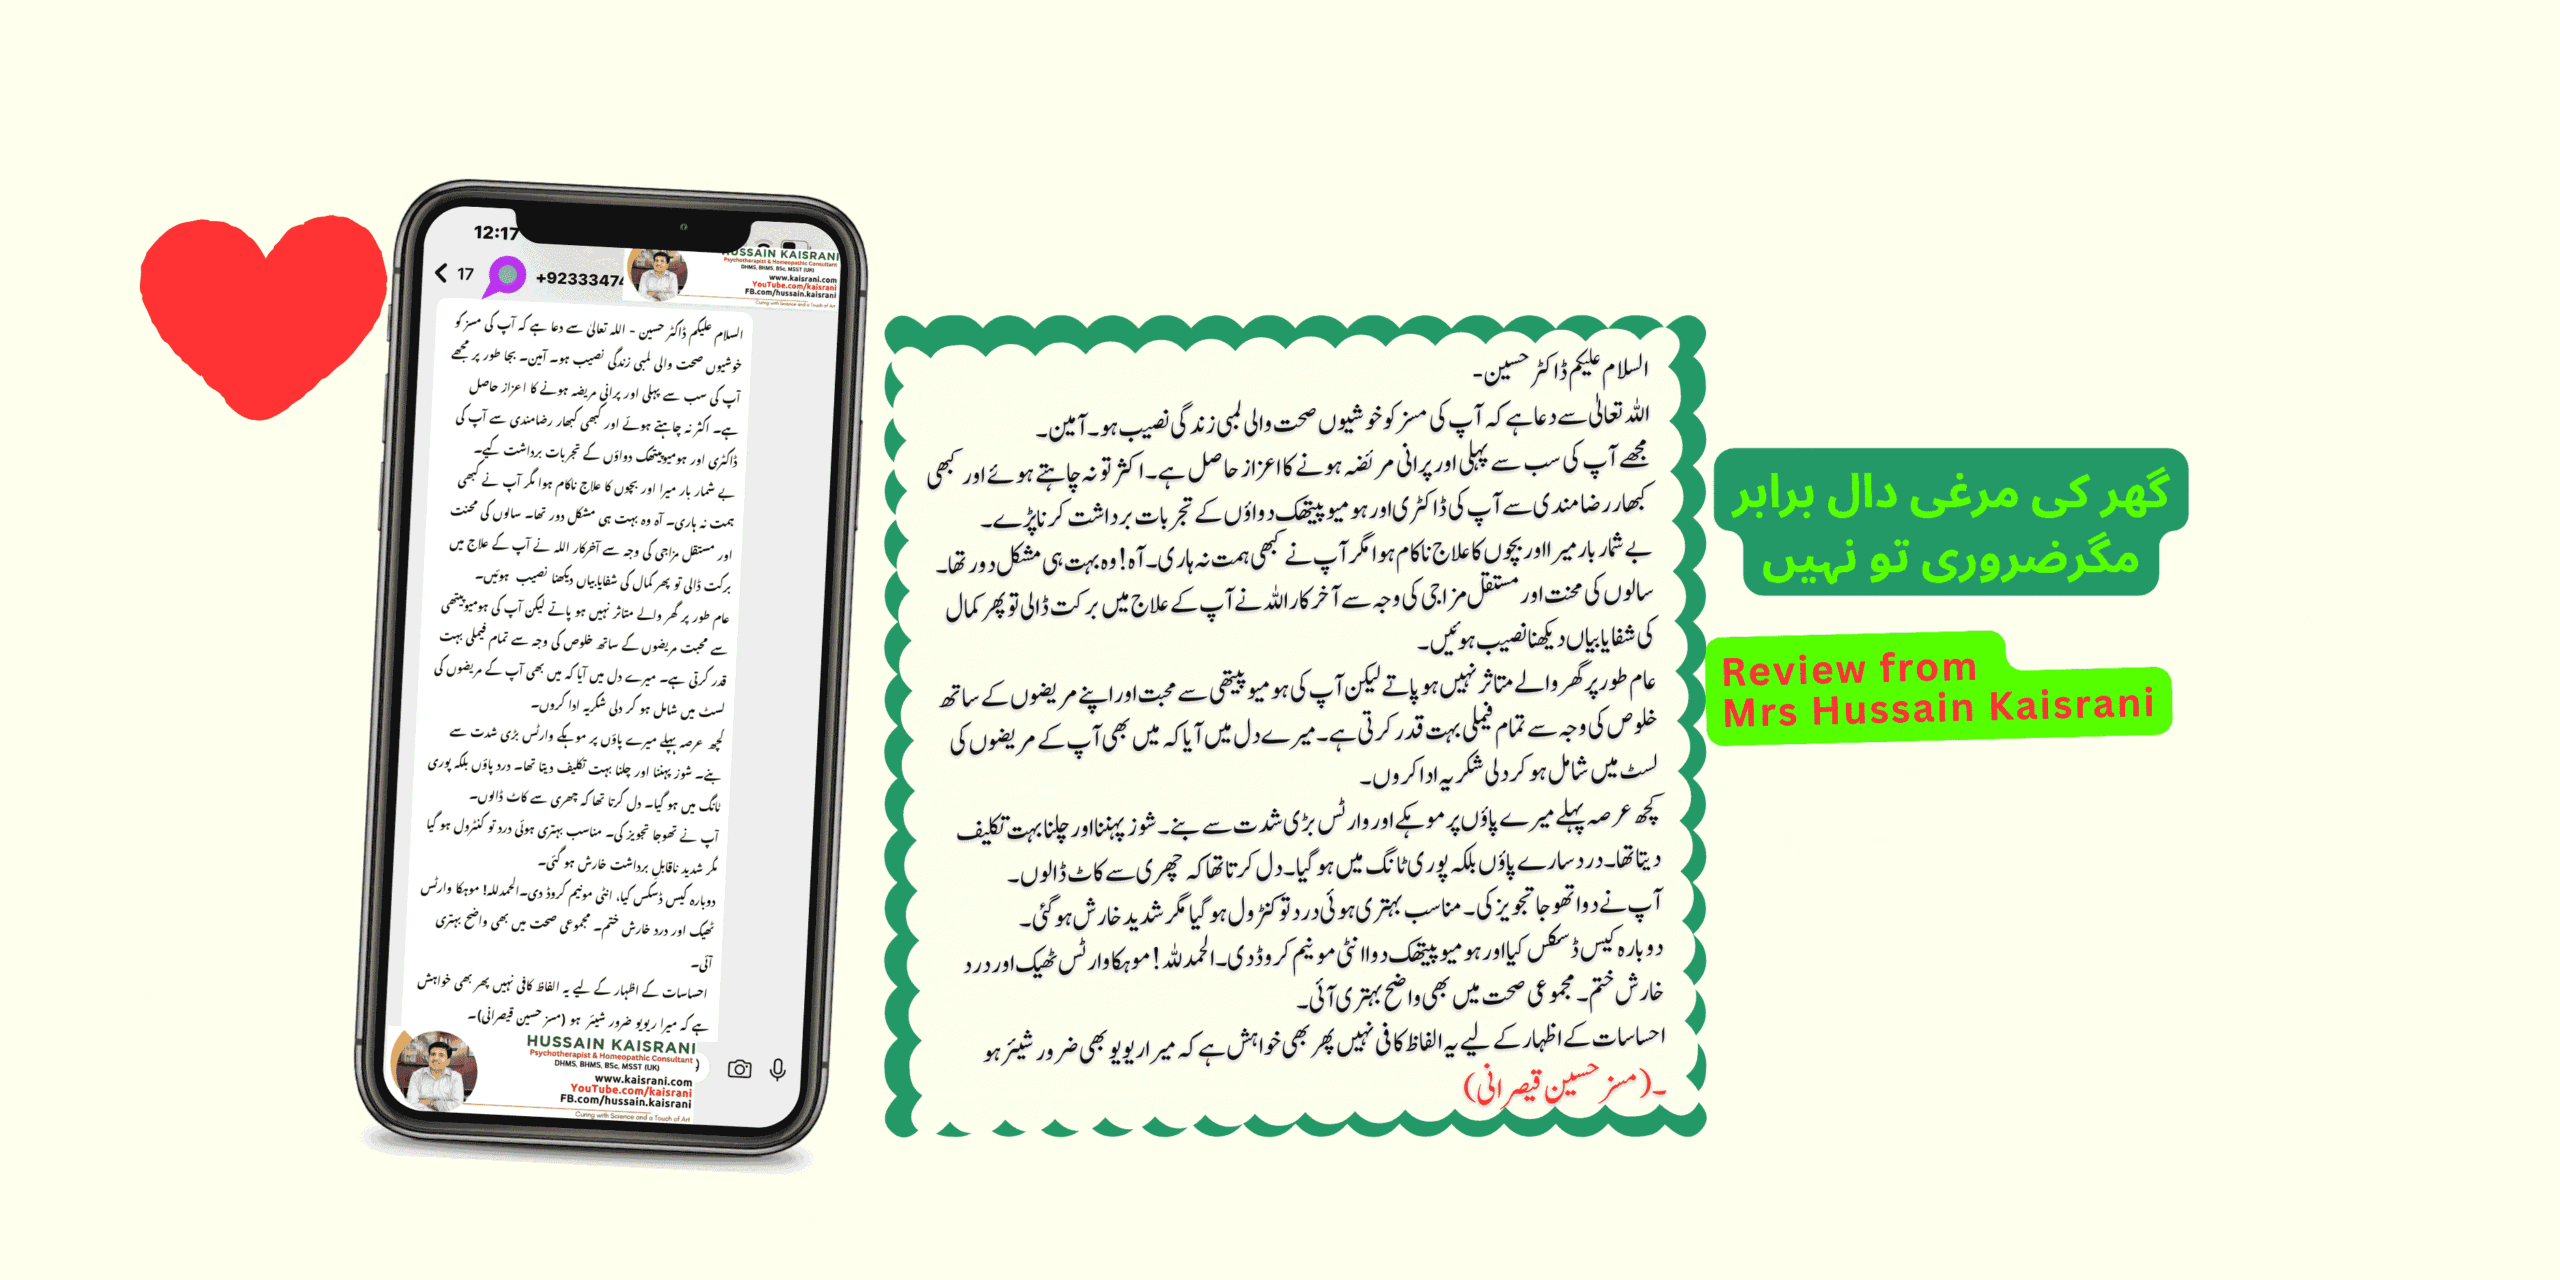 12:17
17
+92333474
HUSSAIN KAISRANI
Psychotherapist & Homeopathic Consultant
DHMS, BHMS, BSc, MSST (UK)
www.kaisrani.com
YouTube.com/kaisrani
FB.com/hussain.kaisrani
Curing with Science and a Touch of Art
السلام علیکم ڈاکٹر حسین - اللہ تعالیٰ سے دعا ہے کہ آپ کی مسز کو
خوشیوں صحت والی لمبی زندگی نصیب ہو۔ آمین۔ بجا طور پر مجھے
آپ کی سب سے پہلی اور پرانی مریضہ ہونے کا اعزاز حاصل
ہے۔ اکثر نہ چاہتے ہوئے اور کبھی کبھار رضامندی سے آپ کی
ڈاکٹری اور ہومیوپیتھک دواؤں کے تجربات برداشت کیے۔
بے شمار بار میرا اور بچوں کا علاج ناکام ہوا مگر آپ نے کبھی
ہمت نہ ہاری۔ آہ وہ بہت ہی مشکل دور تھا۔ سالوں کی محنت
اور مستقل مزاجی کی وجہ سے آخرکار اللہ نے آپ کے علاج میں
برکت ڈالی تو پھر کمال کی شفایابیاں دیکھنا نصیب ہوئیں۔
عام طور پر گھر والے متاثر نہیں ہو پاتے لیکن آپ کی ہومیوپیتھی
سے محبت مریضوں کے ساتھ خلوص کی وجہ سے تمام فیملی بہت
قدر کرتی ہے۔ میرے دل میں آیا کہ میں بھی آپ کے مریضوں کی
لسٹ میں شامل ہو کر دلی شکریہ ادا کروں۔
کچھ عرصہ پہلے میرے پاؤں پر موہکے وارٹس بڑی شدت سے
بنے۔ شوز پہننا اور چلنا بہت تکلیف دیتا تھا۔ درد پاؤں بلکہ پوری
ٹانگ میں ہو گیا۔ دل کرتا تھا کہ چھری سے کاٹ ڈالوں۔
آپ نے تھوجا تجویز کی۔ مناسب بہتری ہوئی درد تو کنٹرول ہو گیا
مگر شدید ناقابلِ برداشت خارش ہو گئی۔
دوبارہ کیس ڈسکس کیا، انٹی مونیم کروڈ دی۔الحمدللہ! موہکا وارٹس
ٹھیک اور درد خارش ختم۔ مجموعی صحت میں بھی واضح بہتری
آئی۔
احساسات کے اظہار کے لیے یہ الفاظ کافی نہیں پھر بھی خواہش
ہے کہ میرا ریویو ضرور شیئر ہو (مسز حسین قیصرانی)۔
HUSSAIN KAISRANI
Psychotherapist & Homeopathic Consultant
DHMS, BHMS, BSc, MSST (UK)
www.kaisrani.com
YouTube.com/kaisrani
FB.com/hussain.kaisrani
Curing with Science and a Touch of Art
السلام علیکم ڈاکٹر حسین۔
اللہ تعالٰی سے دعا ہے کہ آپ کی مسز کو خوشیوں صحت والی لمبی زندگی نصیب ہو۔ آمین۔
مجھے آپ کی سب سے پہلی اور پرانی مریضہ ہونے کا اعزاز حاصل ہے۔ اکثر تو نہ چاہتے ہوئے اور کبھی
کبھار رضامندی سے آپ کی ڈاکٹری اور ہومیوپیتھک دواؤں کے تجربات برداشت کرنا پڑے۔
بے شمار بار میرا اور بچوں کا علاج ناکام ہوا مگر آپ نے کبھی ہمت نہ ہاری۔ آہ! وہ بہت ہی مشکل دور تھا۔
سالوں کی محنت اور مستقل مزاجی کی وجہ سے آخر کار اللہ نے آپ کے علاج میں برکت ڈالی تو پھر کمال
کی شفایابیاں دیکھنا نصیب ہوئیں۔
عام طور پر گھر والے متاثر نہیں ہو پاتے لیکن آپ کی ہومیوپیتھی سے محبت اور اپنے مریضوں کے ساتھ
خلوص کی وجہ سے تمام فیملی بہت قدر کرتی ہے۔ میرے دل میں آیا کہ میں بھی آپ کے مریضوں کی
لسٹ میں شامل ہو کر دلی شکریہ ادا کروں۔
کچھ عرصہ پہلے میرے پاؤں پر موہکے اور وارٹس بڑی شدت سے بنے۔ شوز پہننا اور چلنا بہت تکلیف
دیتا تھا۔ درد سارے پاؤں بلکہ پوری ٹانگ میں ہو گیا۔ دل کرتا تھا کہ چھری سے کاٹ ڈالوں۔
آپ نے دوا تھوجا تجویز کی۔ مناسب بہتری ہوئی درد تو کنٹرول ہو گیا مگر شدید خارش ہو گئی۔
دوبارہ کیس ڈسکس کیا اور ہومیوپیتھک دوا انٹی مونیم کروڈ دی۔ الحمدللہ! موہکا وارٹس ٹھیک اور درد
خارش ختم۔ مجموعی صحت میں بھی واضح بہتری آئی۔
احساسات کے اظہار کے لیے یہ الفاظ کافی نہیں پھر بھی خواہش ہے کہ میرا ریویو بھی ضرور شیئر ہو
۔(مسز حسین قیصرانی)
گھر کی مرغی دال برابر
مگرضروری تو نہیں
Review from
Mrs Hussain Kaisrani